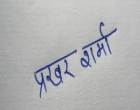 प्रखर शर्मा